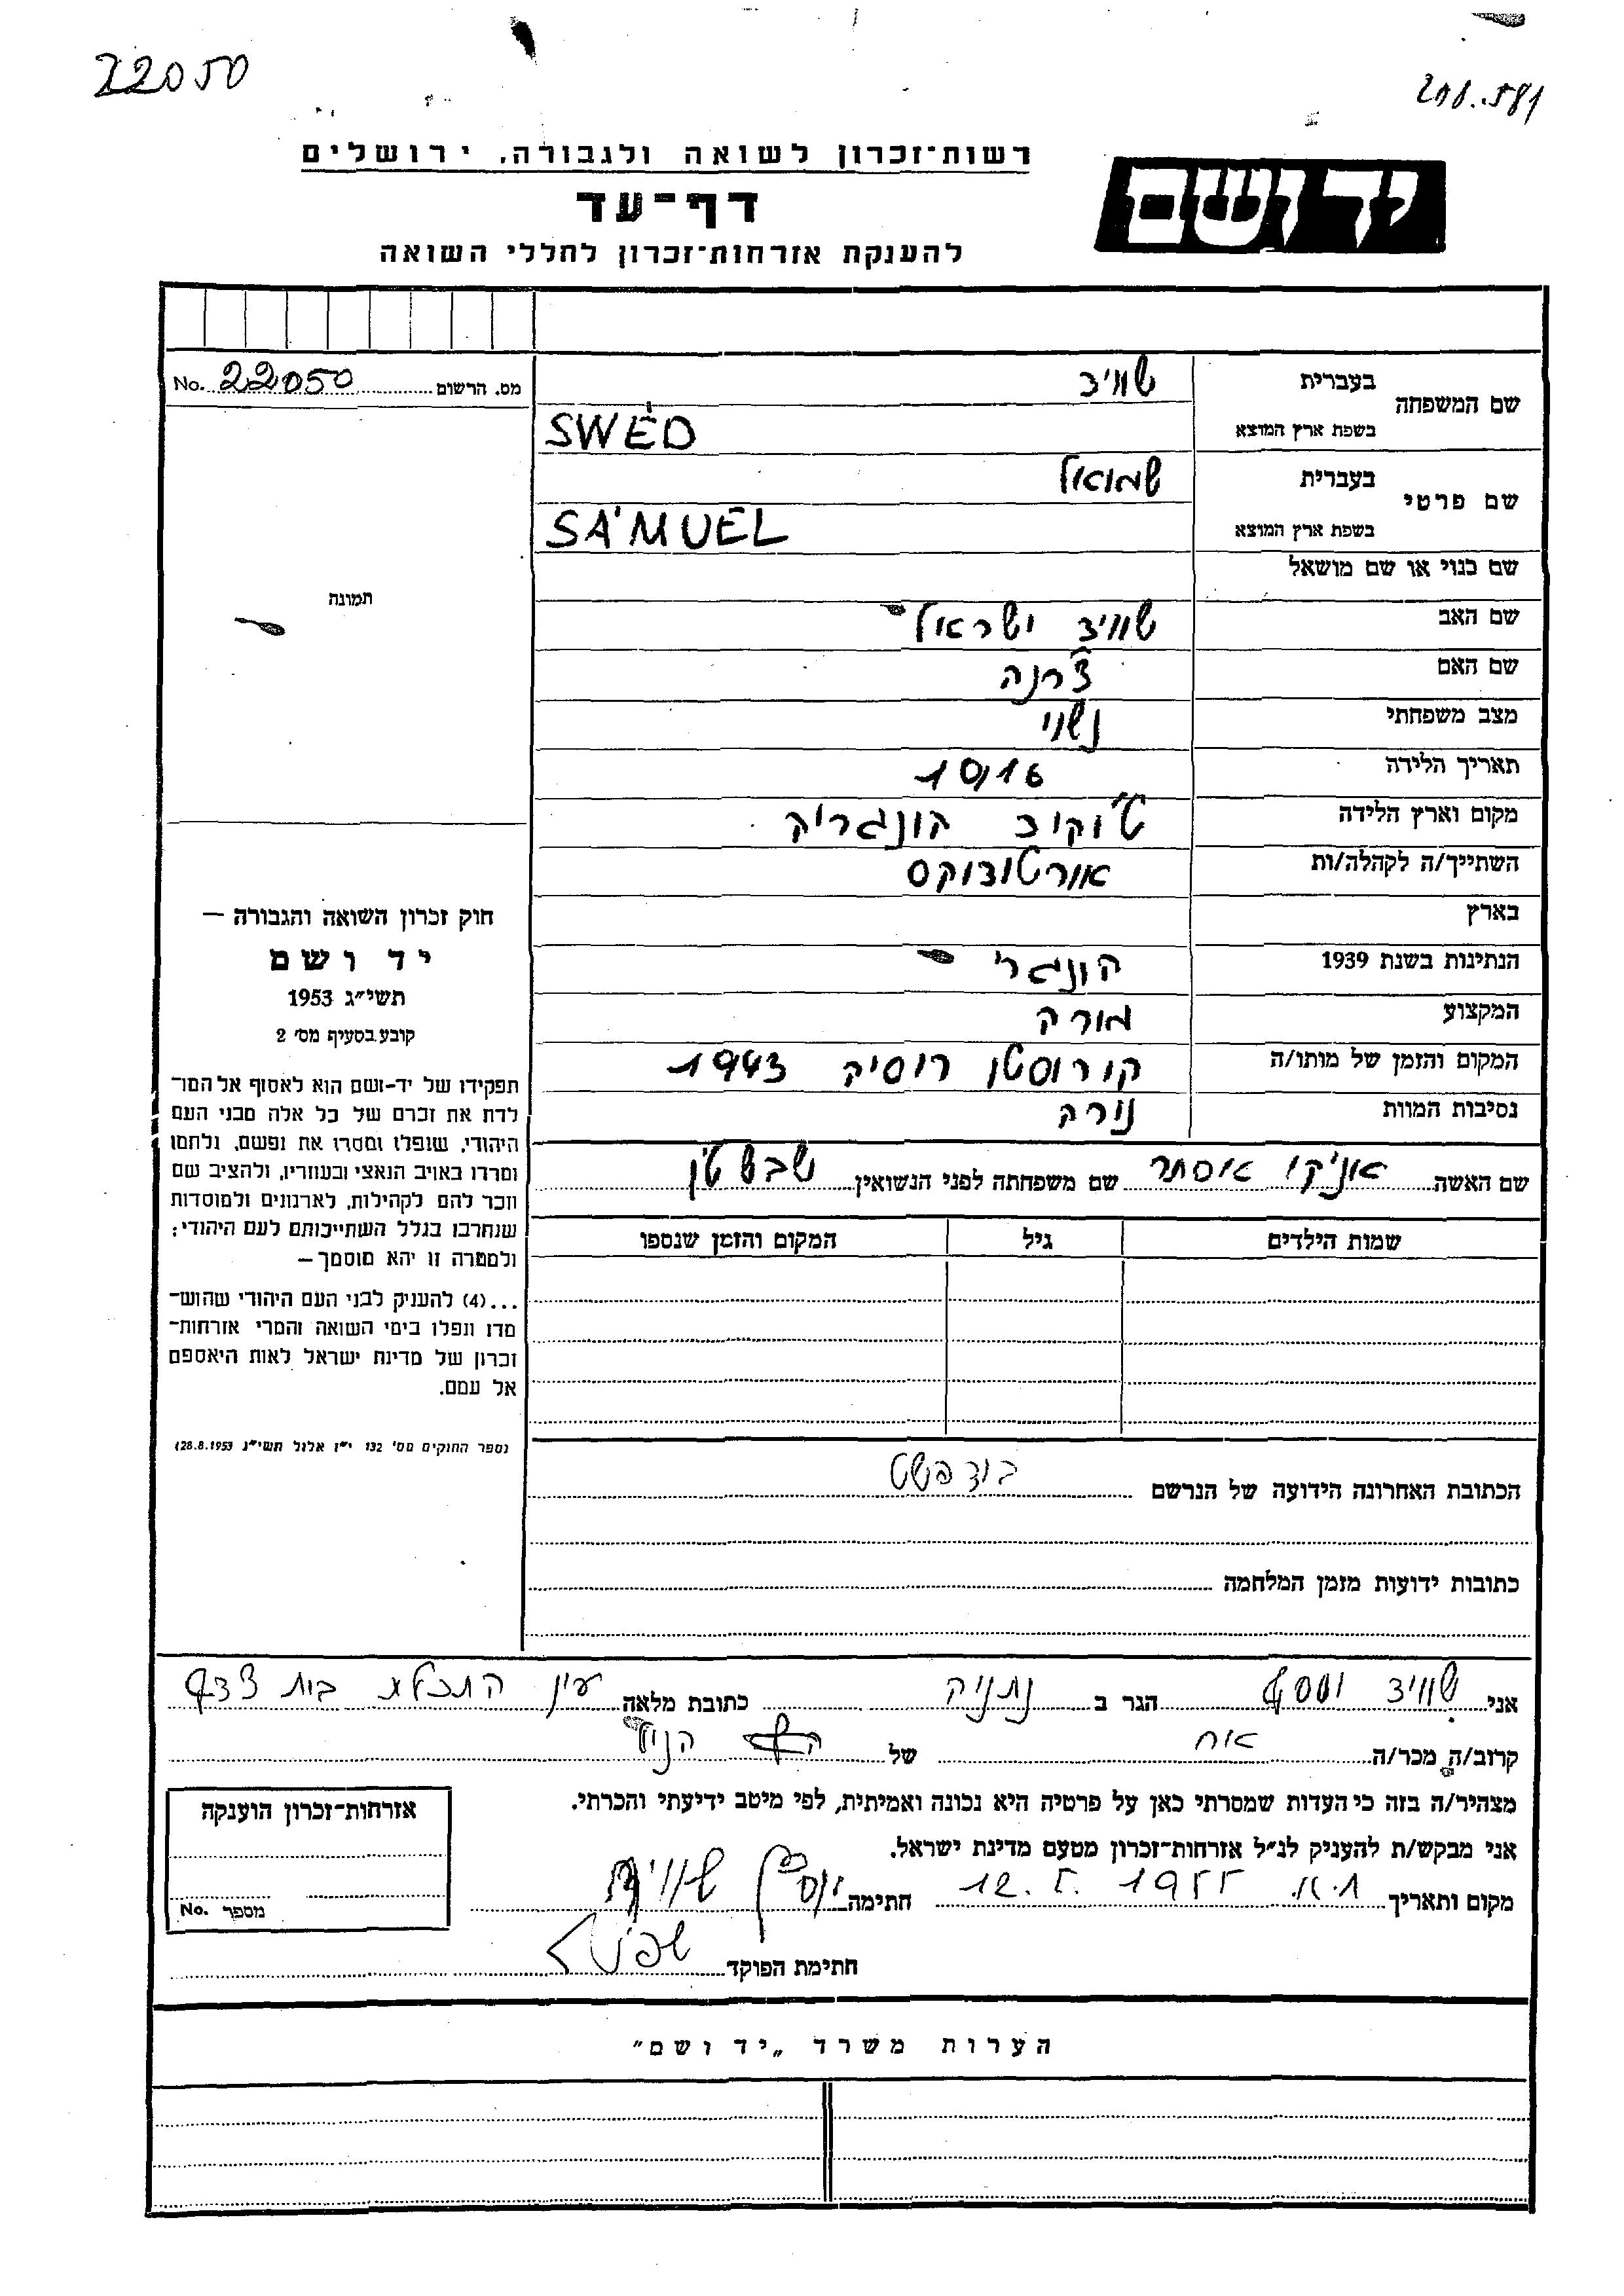 22050
208.581
רשות־זכרון לשואה ולגבורה, ירושלים
יד ושם
דף־עד
להענקת אזרחות־זכרון לחללי השואה
מס. הרשום 22050 No.
שם המשפחה
בעברית שוויצ
בשפת ארץ המוצא SWÉD
שם פרטי
בעברית שמואל
בשפת ארץ המוצא SÁMUEL
שם כנוי או שם מושאל
תמונה
שם האב שוויצ ישראל
שם האם צ'רנה
מצב משפחתי נשוי
תאריך הלידה 10/16
מקום וארץ הלידה הונגריה
השתייך/ה לקהלה/ות אורטודוקס
בארץ
הנתינות בשנת 1939 הונגרי
המקצוע מורה
המקום והזמן של מותו/ה קורוסטן רוסיה 1943
נסיבות המוות נורה
שם האשה אניקו אסתר שם משפחתה לפני הנשואין
שמות הילדים גיל המקום והזמן שנספו
חוק זכרון השואה והגבורה —
יד ושם
תשי״ג 1953
קובע בסעיף מס׳ 2
תפקידו של יד-ושם הוא לאסוף אל המו־
לדת את זכרם של כל אלה מבני העם
היהודי, שנפלו ומסרו את נפשם, נלחמו
ומרדו באויב הנאצי ובעוזריו, ולהציב שם
וזכר להם לקהילות, לארגונים ולמוסדות
שנחרבו בגלל השתייכותם לעם היהודי;
ולמטרה זו יהא מוסמך —
...(4) להעניק לבני העם היהודי שהוש־
מדו ונפלו בימי השואה והמרי אזרחות־
זכרון של מדינת ישראל לאות היאספם
אל עמם.
(ספר החוקים מס׳ 132 י״ז אלול תשי״ג 28.8.1953)
הכתובת האחרונה הידועה של הנרשם בודפשט
כתובות ידועות מזמן המלחמה
אני שוויצ יוסף הגר ב נתניה כתובת מלאה עין התכלת
קרוב/ה מכר/ה אח של הנ״ל
מצהיר/ה בזה כי העדות שמסרתי כאן על פרטיה היא נכונה ואמיתית, לפי מיטב ידיעתי והכרתי.
אני מבקש/ת להעניק לנ״ל אזרחות־זכרון מטעם מדינת ישראל.
מקום ותאריך 12.5.1955 חתימה
חתימת הפוקד
אזרחות־זכרון הוענקה
מספר No.
הערות משרד „יד ושם״